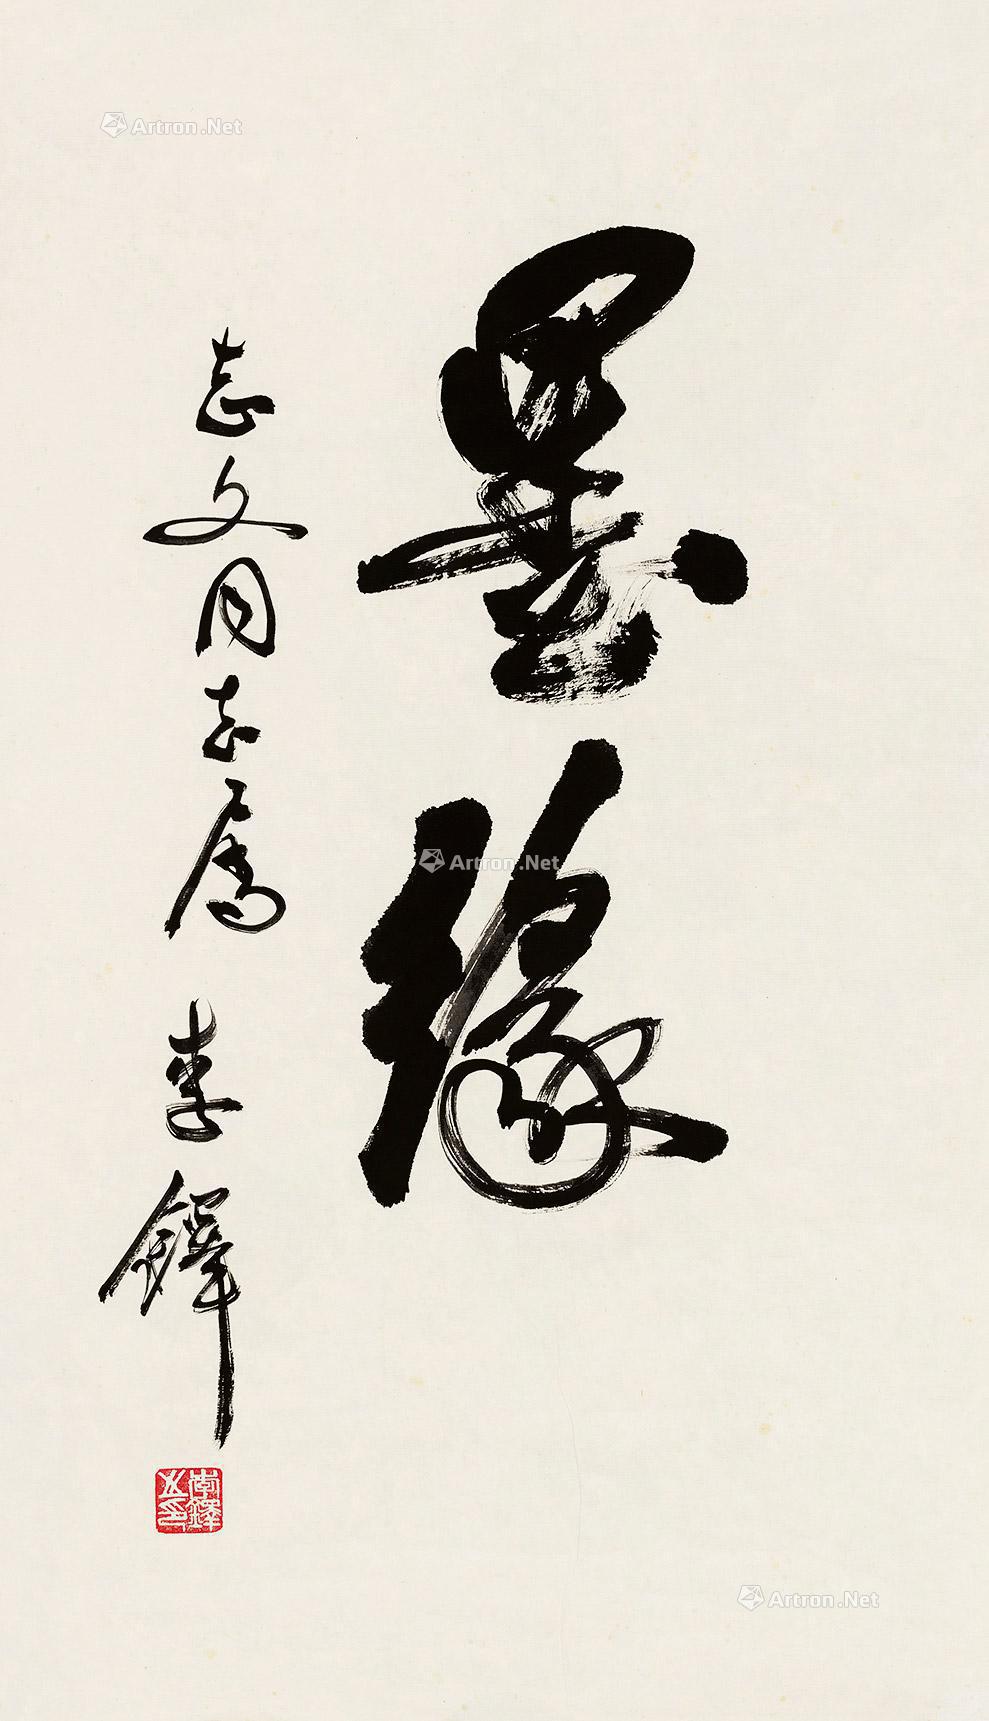 墨缘
志文同志属 李铎
李铎之印
Artron.Net
Artron.Net
Artron.Net